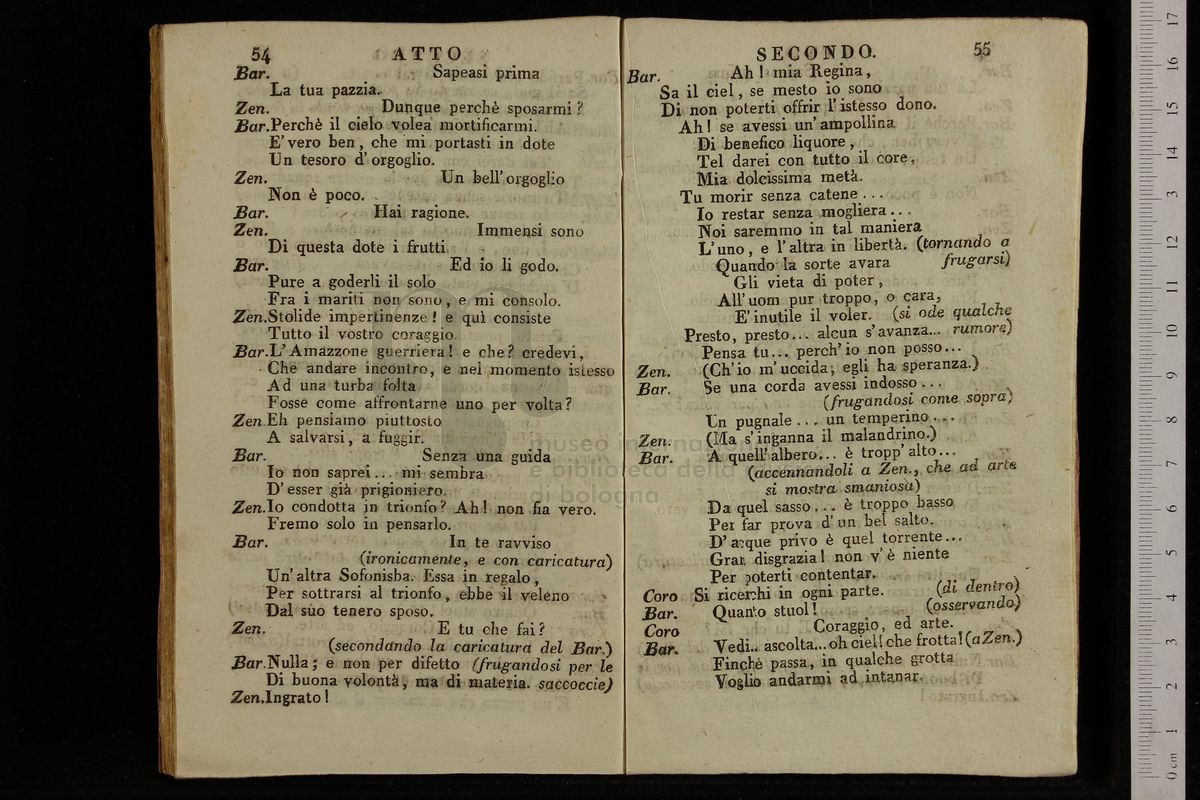 54 ATTO
Bar. Sapeasi prima
La tua pazzia.
Zen. Dunque perchè sposarmi ?
Bar.Perchè il cielo volea mortificarmi.
E' vero ben, che mi portasti in dote
Un tesoro d' orgoglio.
Zen. Un bell' orgoglio
Non è poco.
Bar. Hai ragione.
Zen. Immensi sono
Di questa dote i frutti.
Bar. Ed io li godo.
Pure a goderli il solo
Fra i mariti non sono, e mi consolo.
Zen.Stolide impertinenze ! e quì consiste
Tutto il vostro coraggio.
Bar.L' Amazzone guerriera! e che? credevi,
Che andare incontro, e nel momento istesso
Ad una turba folta
Fosse come affrontarne uno per volta?
Zen.Eh pensiamo piuttosto
A salvarsi, a fuggir.
Bar. Senza una guida
Io non saprei... mi sembra
D' esser già prigioniero.
Zen.Io condotta in trionfo? Ah! non fia vero.
Fremo solo in pensarlo.
Bar. In te ravviso
(ironicamente, e con caricatura)
Un' altra Sofonisba. Essa in regalo,
Per sottrarsi al trionfo, ebbe il veleno
Dal suo tenero sposo.
Zen. E tu che fai?
(secondando la caricatura del Bar.)
Bar.Nulla; e non per difetto (frugandosi per le
Di buona volontà, ma di materia. saccoccie)
Zen.Ingrato !
SECONDO. 55
Bar. Ah ! mia Regina,
Sa il ciel, se mesto io sono
Di non poterti offrir l' istesso dono.
Ah! se avessi un' ampollina
Di benefico liquore,
Tel darei con tutto il core,
Mia dolcissima metà.
Tu morir senza catene...
Io restar senza mogliera...
Noi saremmo in tal maniera
L' uno, e l' altra in libertà. (tornando a
Quando la sorte avara frugarsi)
Gli vieta di poter,
All' uom pur troppo, o cara,
E' inutile il voler. (si ode qualche
Presto, presto... alcun s' avanza... rumore)
Pensa tu... perch' io non posso...
Zen. (Ch' io m' uccida, egli ha speranza.)
Bar. Se una corda avessi indosso...
(frugandosi come sopra)
Un pugnale... un temperino...
Zen. (Ma s' inganna il malandrino.)
Bar. A quell' albero... è tropp' alto...
(accennandoli a Zen., che ad arte
si mostra smaniosa)
Da quel sasso... è troppo basso
Per far prova d' un bel salto.
D' acque privo è quel torrente...
Gran disgrazia! non v' è niente
Per poterti contentar.
Coro Si ricerchi in ogni parte. (di dentro)
Bar. Quanto stuol! (osservando)
Coro Coraggio, ed arte.
Bar. Vedi.. ascolta... oh ciel! che frotta! (a Zen.)
Finchè passa, in qualche grotta
Voglio andarmi ad intanar.
museo
e biblioteca della
di bologna